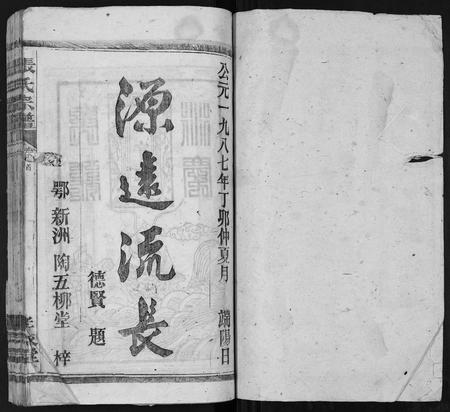 公元一九八七年丁卯仲夏月 端陽日
源遠流長
德賢 題
鄂 新洲 陶五柳堂 梓
張氏宗譜